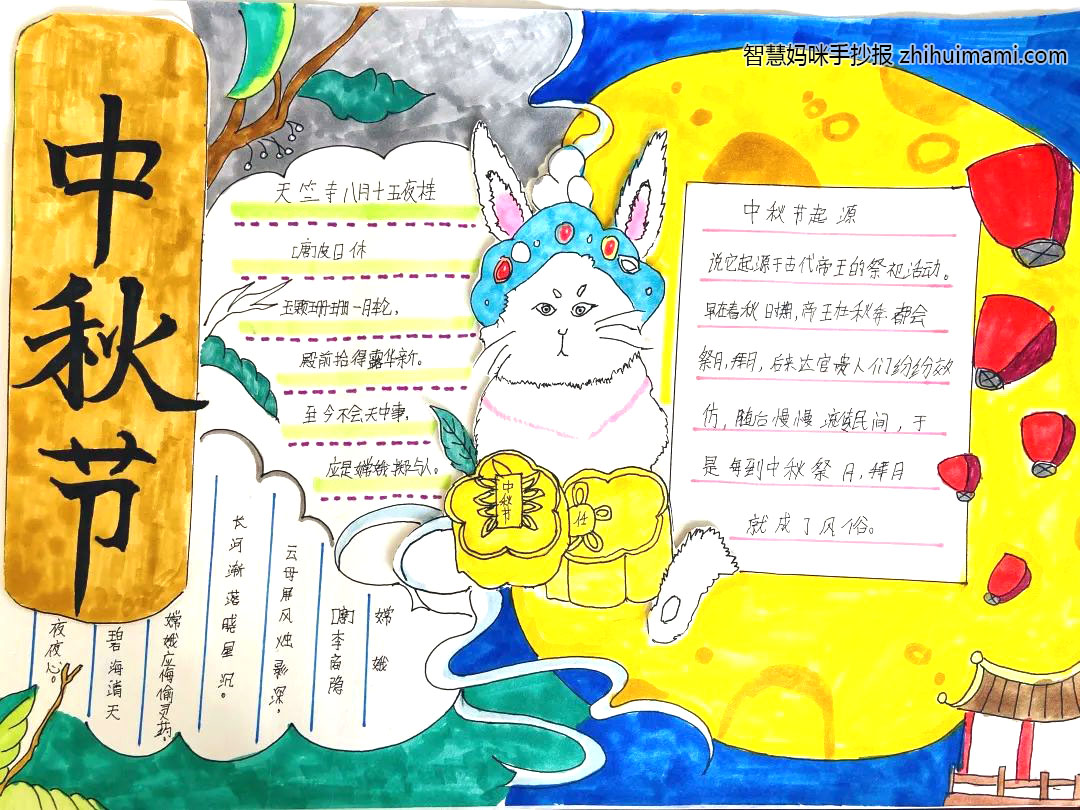 智慧妈咪手抄报 zhihuimami.com
中秋节
天竺寺八月十五夜桂
[唐]皮日休
玉颗珊珊下月轮，
殿前拾得露华新。
至今不会天中事，
应是嫦娥掷与人。
中秋节起源
说它起源于古代帝王的祭祀活动。
早在春秋日期，帝王在秋季都会
祭月，拜月，后来达官贵人们纷纷效
仿，随后慢慢流传民间，于
是每到中秋祭月，拜月
就成了风俗。
中秋节
嫦娥
[唐]李商隐
云母屏风烛影深，
长河渐落晓星沉。
嫦娥应悔偷灵药，
碧海消天
夜夜心。